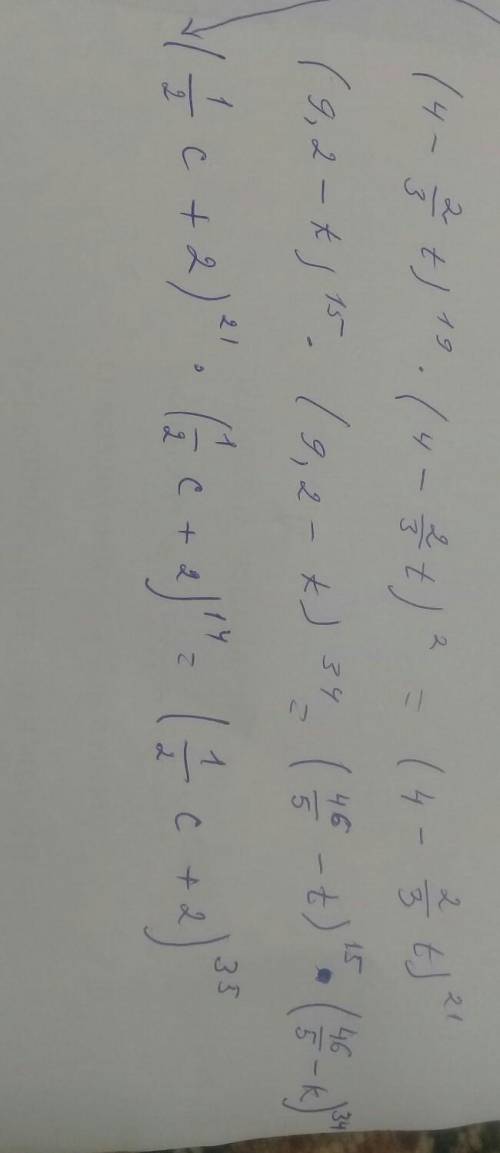 (4 - 2/3 t)^19 · (4 - 2/3 t)^2 = (4 - 2/3 t)^21
(9,2 - t)^15 · (9,2 - t)^34 = (46/5 - t)^15 · (46/5 - k)^34
(1/2 c + 2)^21 · (1/2 c + 2)^14 = (1/2 c + 2)^35